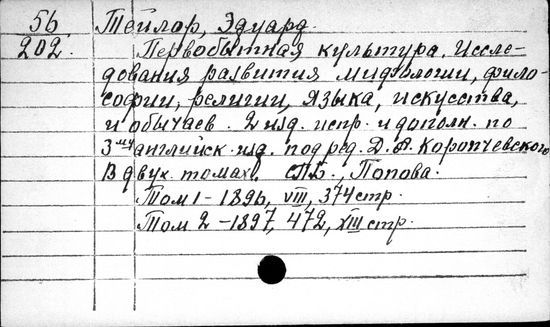 56. Тейлор, Эдуард.
202. Первобытная культура. Иссле-
дования развития мифологии, фило-
софии, религии, языка, искусства,
и обычаев. 2 изд. испр. и дополн. по
3му английск. изд. под ред. Д. А. Коропчевского
В двух томах. СПб., Попова.
Том 1 - 1896, VIII, 374 стр.
Том 2 - 1897, 472, XIII стр.